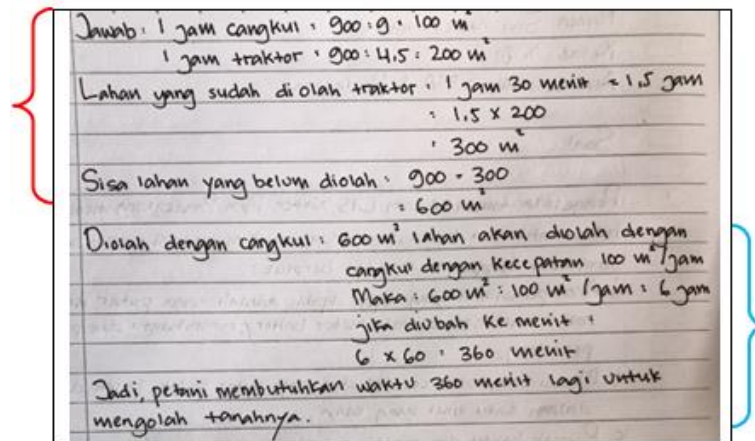 Jawab : 1 jam cangkul : 900 : 9 = 100 m²
1 jam traktor : 900 : 4,5 = 200 m²
Lahan yang sudah diolah traktor : 1 jam 30 menit = 1,5 jam
= 1,5 x 200
= 300 m²
Sisa lahan yang belum diolah : 900 - 300
= 600 m²
Diolah dengan cangkul : 600 m² lahan akan diolah dengan
cangkul dengan kecepatan 100 m²/jam
Maka : 600 m² : 100 m²/jam = 6 jam
jika diubah ke menit :
6 x 60 = 360 menit
Jadi, petani membutuhkan waktu 360 menit lagi untuk
mengolah tanahnya.